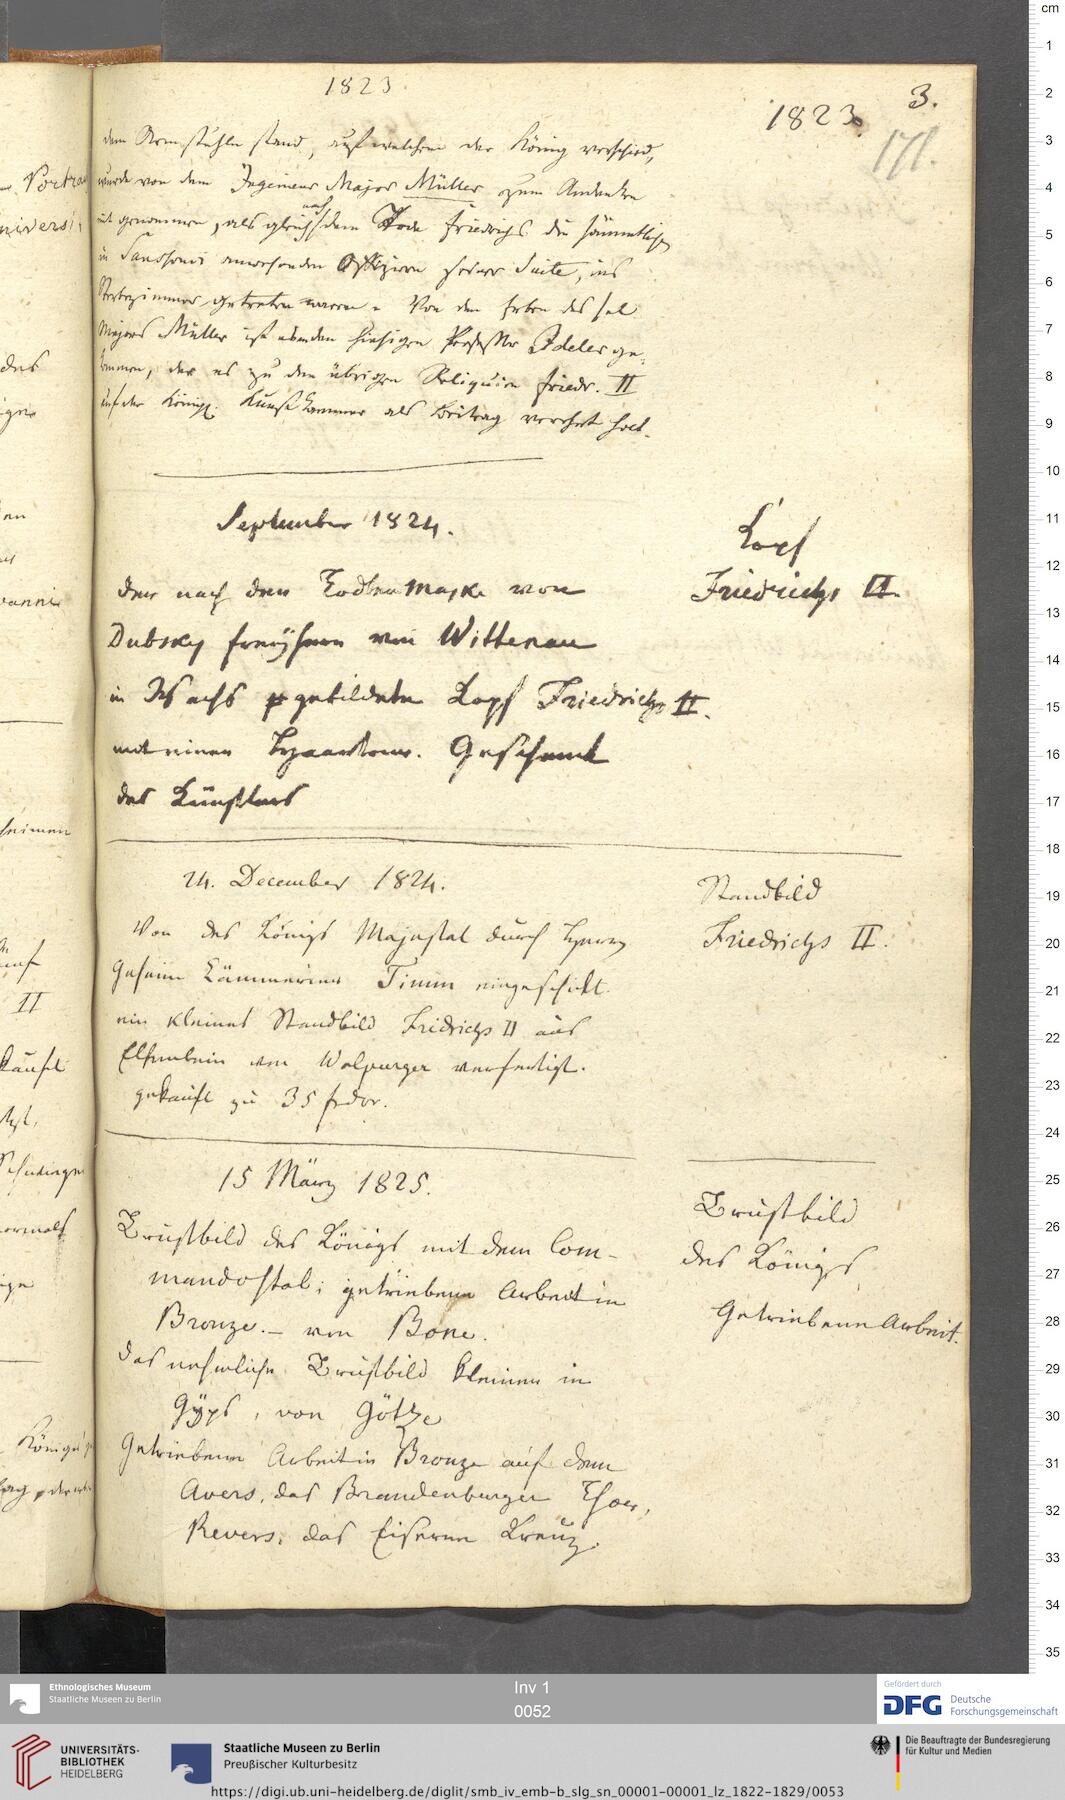 1823
1823.
3.
171.
dem Armstuhle stand, auf welchem der König verschied,
wurde von dem Ingenieur Major Müller zum Andenken
mit genommen, als gleich nach dem Tode Friedrichs die sämmtlichen
in Sanssouci anwesenden Offiziere seiner Suite, ins
Sterbezimmer getreten waren. Von den Erben des sel
Majors Müller ist es an den hiesigen Professor Ideler ge-
kommen, der es zu den übrigen Reliquien Friedr. II
auf der Königl. Kunstkammer als Beitrag verehrt hat.
September 1824.
Kopf
Friedrichs II.
der nach der Todtenmaske von
Dubsky Freyherrn von Wittenau
in Wachs gebildete Kopf Friedrichs II.
mit einer Haartour. Geschenk
des Künstlers
24. December 1824.
Standbild
Friedrichs II.
Von des Königs Majestät durch Herrn
Geheim Kämmerier Timm eingeschickt
ein kleines Standbild Fridrichs II aus
Elfenbein von Wolpurger verfertigt.
gekauft zu 35 frdor.
15 März 1825.
Brustbild
des Königs
Getriebene Arbeit.
Brustbild des Königs mit dem Com-
mandostab; getriebene Arbeit in
Bronze. – von Bone.
das nehmliche Brustbild kleiner in
Gÿps, von Götze
Getriebene Arbeit in Bronze auf dem
Avers, das Brandenburger Thor,
Revers, das Eiserne Kreuz.
Ethnologisches Museum
Staatliche Museen zu Berlin
Inv 1
0052
Gefördert durch
DFG Deutsche
Forschungsgemeinschaft
UNIVERSITÄTS-
BIBLIOTHEK
HEIDELBERG
Staatliche Museen zu Berlin
Preußischer Kulturbesitz
Die Beauftragte der Bundesregierung
für Kultur und Medien
https://digi.ub.uni-heidelberg.de/diglit/smb_iv_emb-b_slg_sn_00001-00001_lz_1822-1829/0053